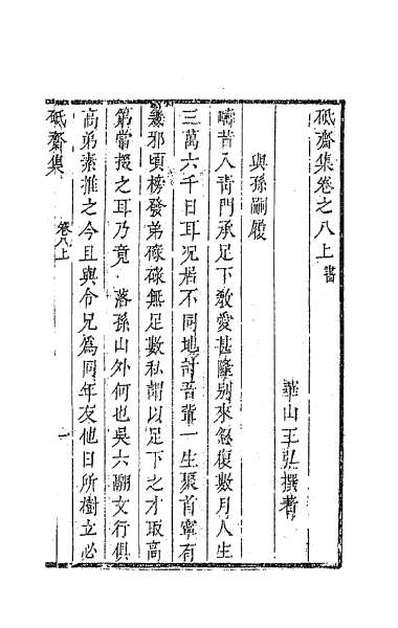 砥齋集卷之八上 書
華山王弘撰著
與孫嗣履
疇昔入靑門承足下敎愛甚隆別來忽復數月人生
三萬六千日耳况居不同地計吾輩一生聚首寧有
幾邪頃榜發弟碌碌無足數私謂以足下之才取高
第當掇之耳乃竟落孫山外何也吳六翮文行俱
高弟素推之今且與令兄爲同年友他日所樹立必
砥齋集
卷八上
一